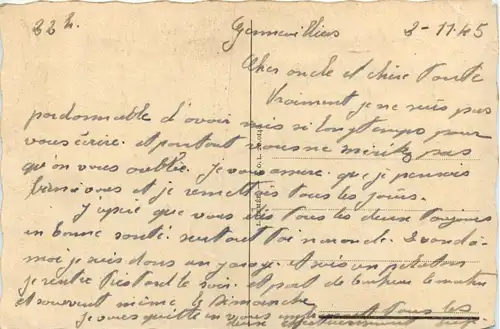 22 h. Gennevilliers 2-11-45
Cher oncle et chère tante
Vraiment je ne suis pas
pardonnable d'avoir mis si longtemps pour
vous écrire. et pourtant vous ne méritez pas
qu'on vous oublie. Je vous assure que je pensais
bien à vous et je remettais tous les jours.
J'espère que vous êtes tous les deux toujours
en bonne santé. surtout toi
moi je suis dans un garage. et suis
je rentre très tard le soir. et part de bonheur le matin
et souvent même le Dimanche
je vous quitte en vous embrassant tous les
deux affectueusement